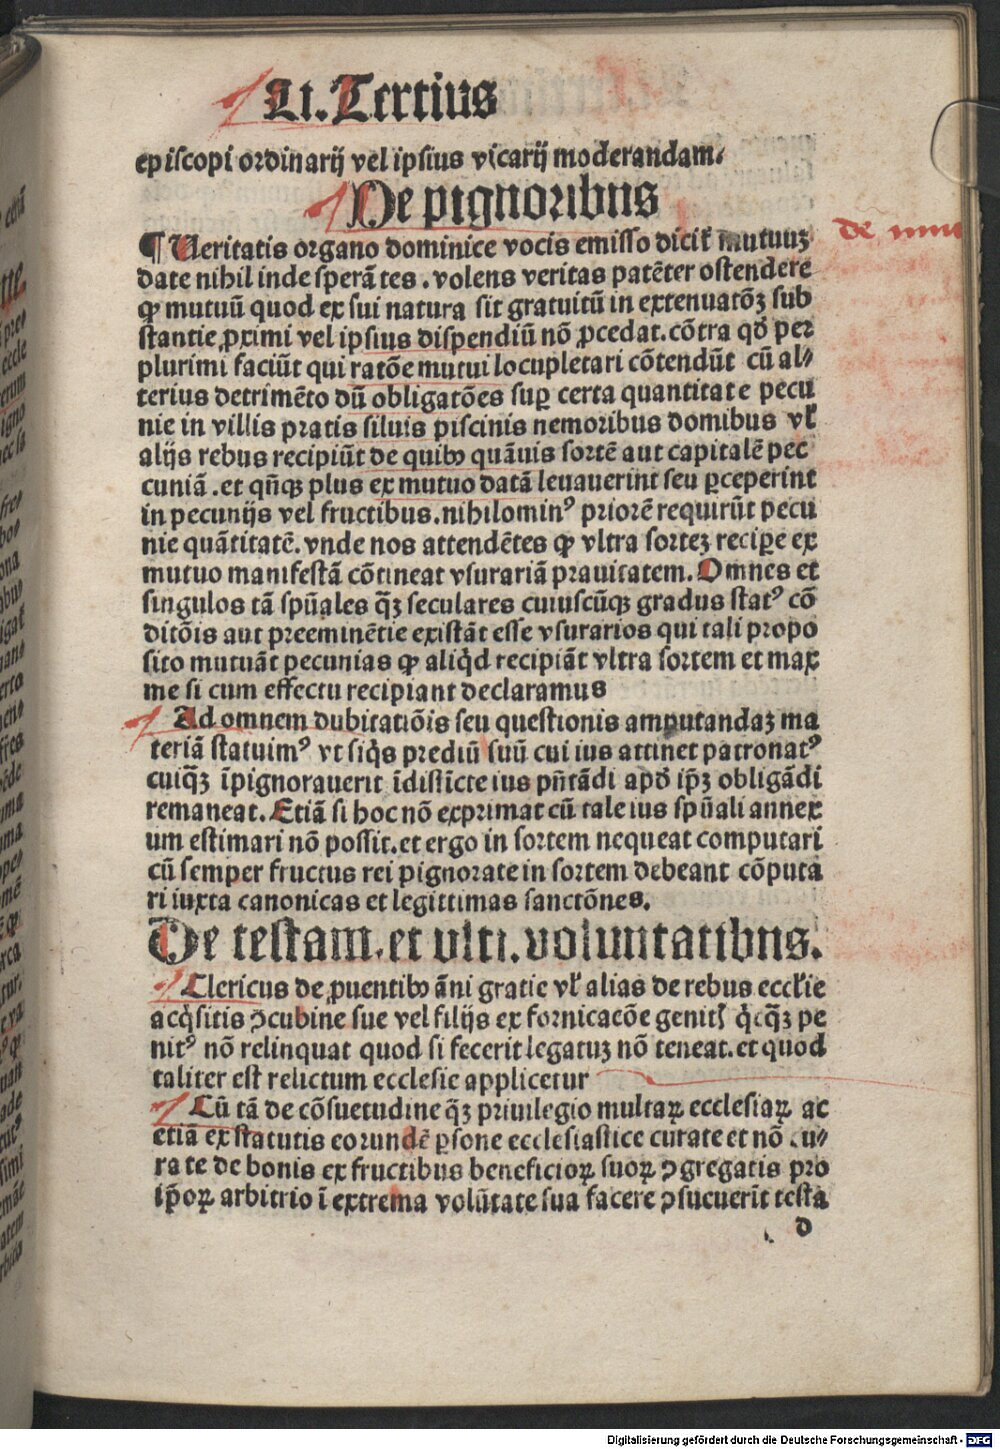 Li. Tertius
episcopi ordinarij vel ipsius vicarij moderandam.
De pignoribus
de mutu
¶ Ueritatis organo dominice vocis emisso dicit᷑ mutuuꝫ
date nihil inde sperātes. volens veritas patēter ostendere
ꝙ mutuū quod ex sui natura sit gratuitū in extenuatōꝫ sub
stantie ꝓximi vel ipsius dispendiū nō ꝓcedat. cōtra qd̄ per
plurimi faciūt qui ratōe mutui locupletari cōtendūt cū al⸗
terius detrimēto dū obligatōes suꝑ certa quantitate pecu
nie in villis pratis siluis piscinis nemoribus domibus vl̕
alijs rebus recipiūt de quibꝰ quāuis sortē aut capitalē pec
cuniā. et qn̄qꝫ plus ex mutuo datā leuauerint seu ꝑceperint
in pecunijs vel fructibus. nihilominꝰ priorē requirūt pecu
nie quātitatē. vnde nos attendētes ꝙ vltra sorteꝫ reciꝑe ex
mutuo manifestā cōtineat vsurariā prauitatem. Omnes et
singulos tā spūales q̄ꝫ seculares cuiuscūqꝫ gradus statꝰ cō
ditōis aut preeminētie existāt esse vsurarios qui tali propo
sito mutuāt pecunias ꝙ aliq̇d recipiāt vltra sortem et max
me si cum effectu recipiant declaramus
Ad omnem dubitatiōis seu questionis amputandaꝫ ma
teriā statuimꝰ vt siq̇s prediū suū cui ius attinet patronatꝰ
cuiq̄ꝫ īpignorauerit īdistīcte ius pn̄tādi apd̄ ip̄ꝫ obligādi
remaneat. Etiā si hoc nō exprimat cū tale ius spūali annex
um estimari nō possit. et ergo in sortem nequeat computari
cū semper fructus rei pignorate in sortem debeant cōputa
ri iuxta canonicas et legittimas sanctōnes.
De testam. et ulti. voluntatibus.
Clericus de ꝓuentibꝰ āni gratie vl̕ alias de rebus eccl̕ie
acq̇sitis ꝯcubine sue vel filijs ex fornicacōe genit᷑ q̇cq̄ꝫ pe
nitꝰ nō relinquat quod si fecerit legatuꝫ nō teneat. et quod
taliter est relictum ecclesie applicetur
Cū tā de cōsuetudine q̄ꝫ priuilegio multaꝝ ecclesiaꝝ ac
etiā ex statutis eorundē ꝑsone ecclesiastice curate et nō cu⸗
rate de bonis ex fructibus beneficioꝝ suoꝝ ꝯgregatis pro
ip̄oꝝ arbitrio ī extrema volūtate sua facere ꝯsueuerīt testa
d
Digitalisierung gefördert durch die Deutsche Forschungsgemeinschaft - DFG